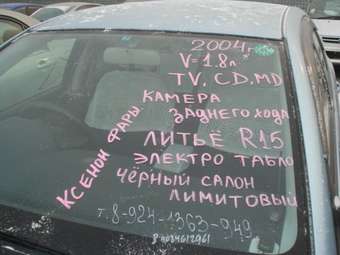 2004г.
V=1.8л.
TV, CD, MD
КАМЕРА
ЗАДНЕГО ХОДА
КСЕНОН ФАРЫ
ЛИТЬЁ R15
ЭЛЕКТРО ТАБЛО
ЧЁРНЫЙ САЛОН
ЛИМИТОВЫЙ
т. 8-924-1363-949
89084612961